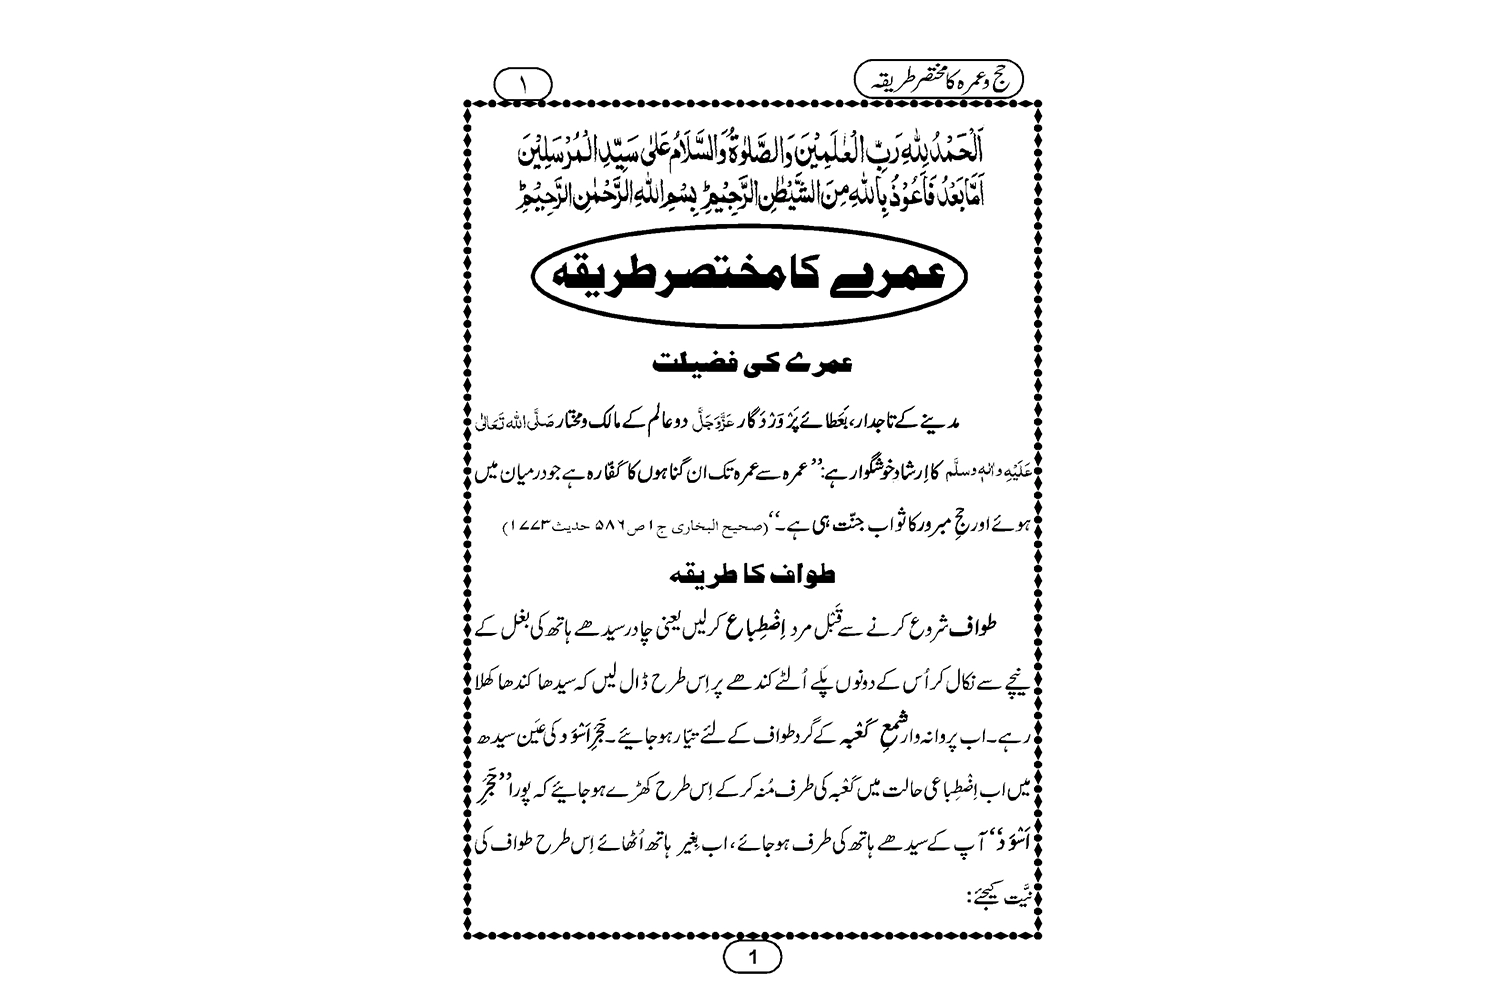 حج و عمرہ کا مختصر طریقہ
۱
اَلْحَمْدُ لِلّٰهِ رَبِّ الْعٰلَمِيْنَ وَالصَّلٰوةُ وَالسَّلَامُ عَلٰى سَيِّدِ الْمُرْسَلِيْنَ
اَمَّا بَعْدُ فَاَعُوْذُ بِاللّٰهِ مِنَ الشَّيْطٰنِ الرَّجِيْمِ ؕ بِسْمِ اللّٰهِ الرَّحْمٰنِ الرَّحِيْمِ ؕ
عمرے کا مختصر طریقہ
عمرے کی فضیلت
مدینے کے تاجدار، بَعَطائے پَرْوَرْدَگار عَزَّوَجَلَّ دو عالم کے مالک و مختار صَلَّی اللہ تَعَالٰی
عَلَیْہِ واٰلہٖ وسلَّم کا اِرشادِ خوشگوار ہے: ’’عمرہ سے عمرہ تک ان گناہوں کا کَفّارہ ہے جو درمیان میں
ہوئے اور حجِ مبرور کا ثواب جنّت ہی ہے۔‘‘ (صحیح البخاری ج۱ ص۵۸۶ حدیث ۱۷۷۳)
طواف کا طریقہ
طواف شروع کرنے سے قَبْل مرد اِضْطِباع کرلیں یعنی چادر سیدھے ہاتھ کی بغل کے
نیچے سے نکال کر اُس کے دونوں پَلّے اُلٹے کندھے پر اِس طرح ڈال لیں کہ سیدھا کندھا کھلا
رہے۔ اب پروانہ وار شمعِ کَعْبہ کے گرد طواف کے لئے تیّار ہوجایئے۔ حَجَرِ اَسْوَد کی عَین سیدھ
میں اب اِضْطِباعی حالت میں کَعْبہ کی طرف مُنہ کرکے اِس طرح کھڑے ہوجایئے کہ پورا ’’حَجَرِ
اَسْوَد‘‘ آپ کے سیدھے ہاتھ کی طرف ہوجائے، اب بِغیر ہاتھ اُٹھائے اِس طرح طواف کی
نیَّت کیجئے:
1